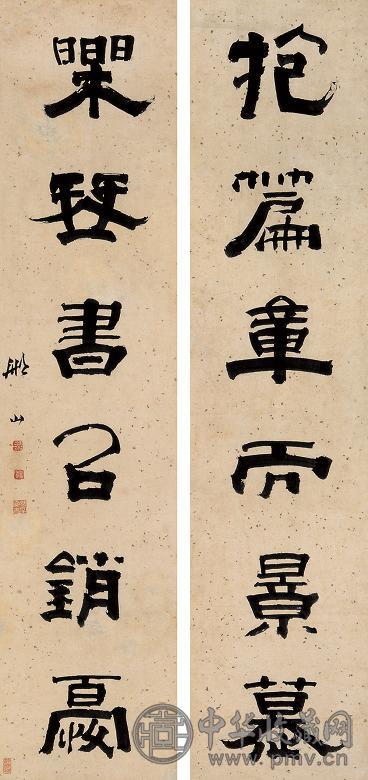 抱篇章而景慕
樂琴書以銷憂
山
中华收藏网
www.pmvc.cn